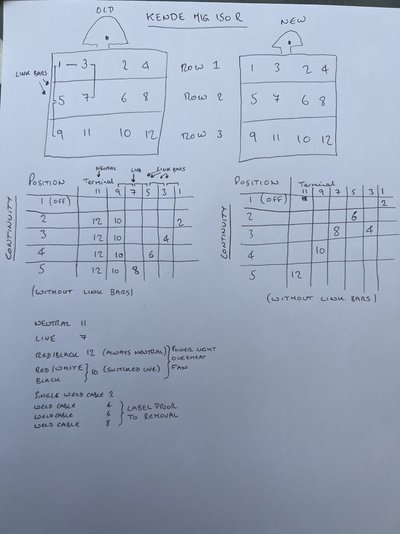 OLD KENDE MIG 150R NEW
LINK BARS
1 — 3 2 4 ROW 1 1 3 2 4
5 7 6 8 ROW 2 5 7 6 8
9 11 10 12 ROW 3 9 11 10 12
NEUTRAL LIVE LINK BARS
POSITION Terminal POSITION Terminal
11 9 7 5 3 1 11 9 7 5 3 1
1 (OFF) 1 (OFF) 2
2 12 10 2 2 6
3 12 10 4 3 8 4
4 12 10 6 4 10
5 12 10 8 5 12
CONTINUITY CONTINUITY
(WITHOUT LINK BARS) (WITHOUT LINK BARS)
NEUTRAL 11
LIVE 7
RED/BLACK 12 (ALWAYS NEUTRAL) POWER LIGHT
RED/WHITE OVERHEAT
BLACK 10 (SWITCHED LIVE) FAN
SINGLE WELD CABLE 2
WELD CABLE 4 LABEL PRIOR
WELD CABLE 6 TO REMOVAL
WELD CABLE 8